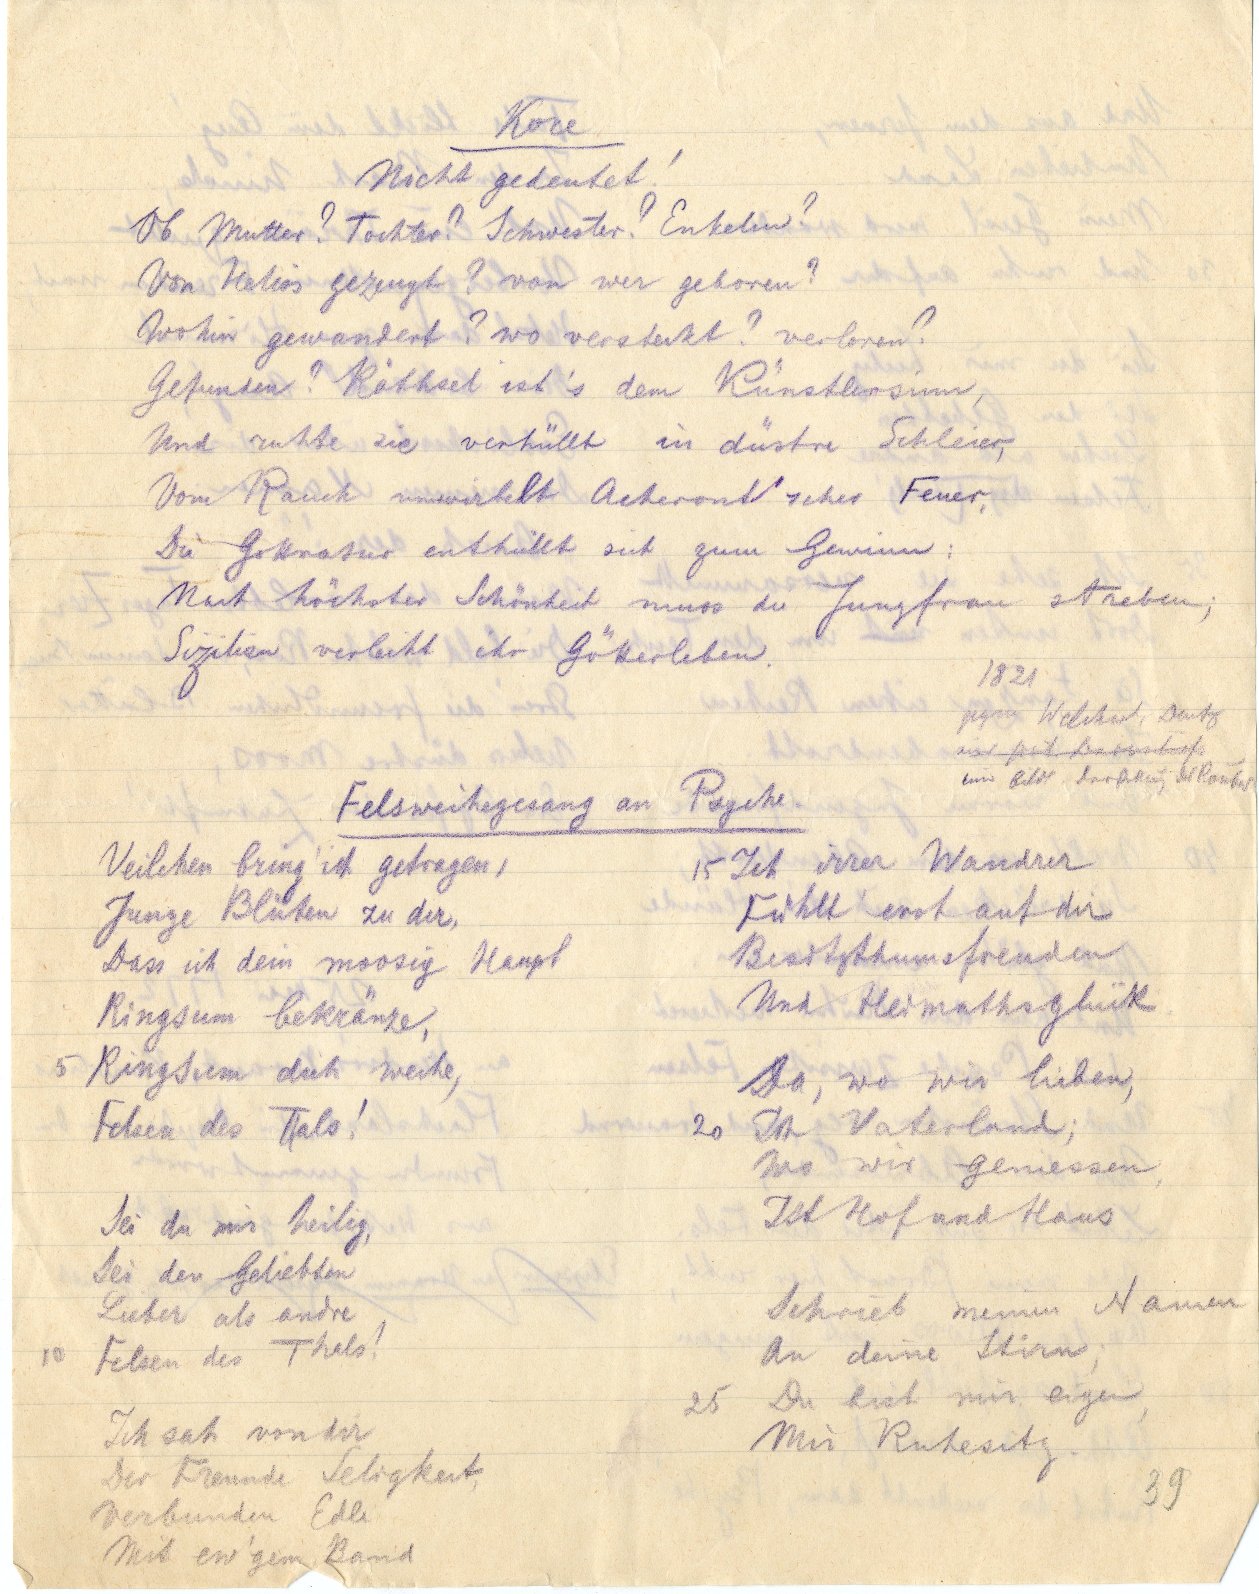 Kore
Nicht gedeutet!
Ob Mutter? Tochter? Schwester? Enkelin?
Von Helios gezeugt? von wer geboren?
Wohin gewandert? wo versteckt? verloren?
Gefunden? Räthsel ist's dem Künstlersinn,
Und ruhte sie verhüllt in düstre Schleier,
Vom Rauch umwirbelt Acheront'scher Feuer,
Die Gottnatur enthüllt sich zum Gewinn:
Nach höchster Schönheit muss die Jungfrau streben;
Sizilien verleiht ihr Götterleben.
1821
gegen Welcker,
Felsweihegesang an Psyche.
Veilchen bring' ich getragen,
Junge Blüten zu dir,
Dass ich dein moosig Haupt
Ringsum bekränze,
5 Ringsum dich weihe,
Felsen des Thals!
Sei du mir heilig,
Sei den Geliebten
Lieber als andre
10 Felsen des Thals!
Ich sah von dir
Der Freunde Seligkeit,
Verbunden Edle
Mit ew'gem Band
15 Ich irrer Wandrer
Fühlt erst auf dir
Besitzthumsfreuden
Und Heimathsglück.
Da, wo wir lieben,
20 Ist Vaterland;
Wo wir geniessen,
Ist Hof und Haus
Schrieb meinen Namen
An deine Stirn;
25 Du bist mir eigen,
Mir Ruhesitz.
39